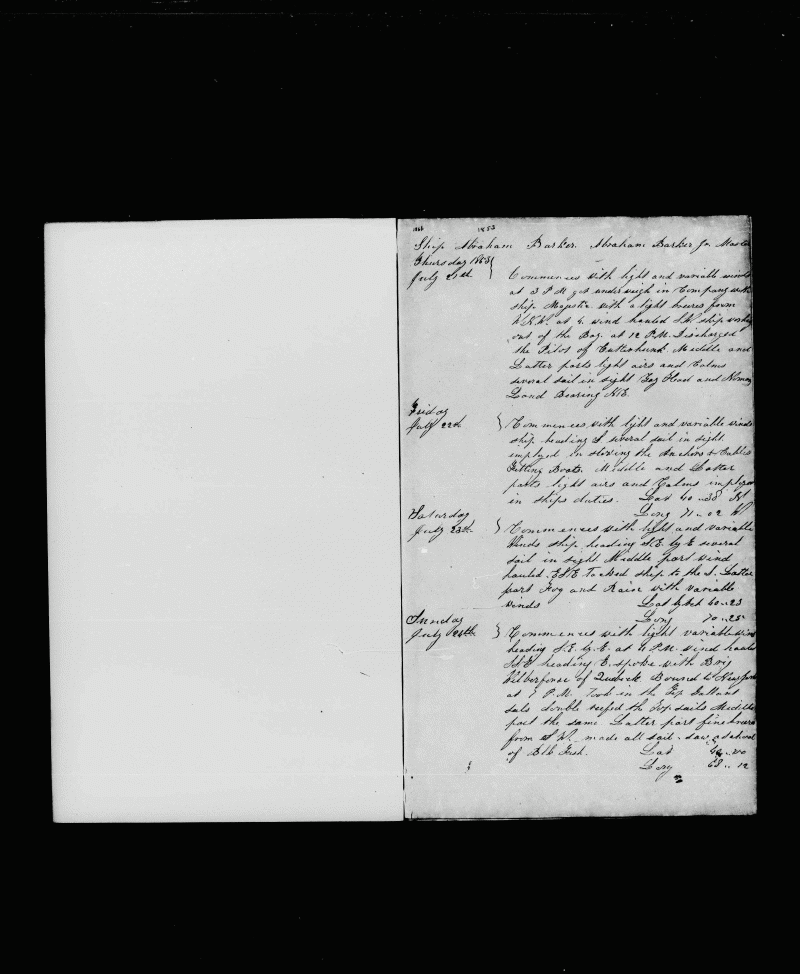 1853
Ship Abraham Barker. Abraham Barker Jr Master
Thursday 1853
July 21st Commences with light and variable winds
at 3 P M got underweigh in Company with
ship Majestic with a light breeze from
at 4. wind hauled S.W. ship working
out of the Bay. at 12 P.M. Discharged
the Pilot of Cutterhunk Middle and
Latter parts light airs and Calms
several sail in sight Gay Head and Nomans
Land Bearing
Friday
July 22th Commences with light and variable winds
ship heading S several sail in sight
employed in stowing the Anchors & Cables
Fitting Boats. Middle and Latter
parts light airs and Calms employed
in ships duties. Lat 40..38 N
Long 71..02 W
Saturday
July 23th Commences with light and variable
Winds ship heading S.E. by E several
sail in sight Middle part wind
hauled ESE Tacked ship to the S. Latter
part Fog and Raise with variable
winds Lat by 40..23
Long 70..25
Sunday
July 24th Commences with light variable wind
heading S.E. by E. at 4 P.M. wind hauled
heading E. spoke with Brig
Wilberforse of Bound to
at 7 P.M. Took in the Top Gallant
sails double reefed the Topsails Middle
part the same Latter part fine breeze
from S.W. made all sail. saw a school
of Blk Fish. Lat 40..20
Long 68..12